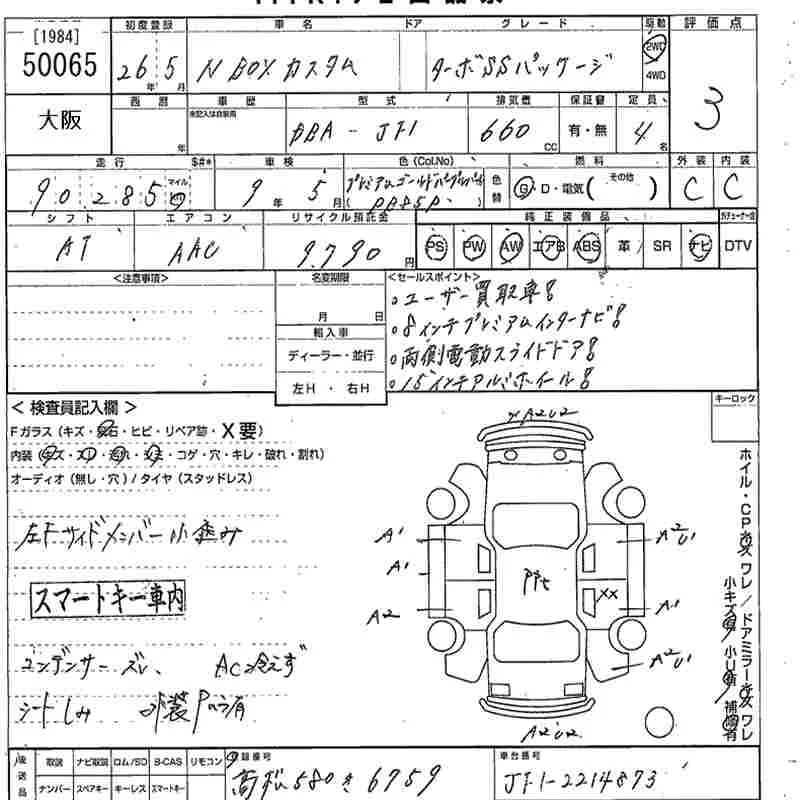 [1984]
50065
大阪
初度登録 車名 ドア グレード 駆動
26年 5月 N BOX カスタム ターボSSパッケージ 2WD 4WD
評価点
3
西暦 車歴 型式 排気量 保証書 定員
未記入は自家用
年 DBA - JF1 660 CC 有・無 4名
走行 $#* 車検 色(Col.No) 燃料 外装 内装
90285 マイル 9年 5月 プレミアムゴールドパープルパール ( PB85P ) 色替 G・D・電気( その他 ) C C
シフト エアコン リサイクル預託金 純正装備品
AT AAC 9,790円 PS PW AW エアB ABS 革 SR ナビ DTV
<注意事項>
名変期限
月 日
輸入車
ディーラー・並行
左H・右H
<セールスポイント>
。ユーザー買取車!
。8インチプレミアムインターナビ!
。両側電動スライドドア!
。15インチアルミホイール!
<検査員記入欄>
Fガラス(キズ・飛石・ヒビ・リペア跡・X要)
内装(キズ・スレ・汚れ・シミ・コゲ・穴・キレ・破れ・割れ)
オーディオ(無し・穴)/タイヤ(スタッドレス)
左Fサイドメンバー小歪み
スマートキー車内
コンデンサーズレ、 AC冷えず
シートしみ 外装Pのう有
キーロック
A2U2
A1
A1
A2
A2U1
PPt
XX
A1
A2U1
A2U2
ホイル・CPキズ ワレ/ドアミラーキズ ワレ
小キズ有 小U有 補修有
後送品
取説 ナビ取説 ロム/SD B-CAS リモコン
ナンバー スペアキー キーレス スマートキー
登録番号
高松580 き 6759
車台番号
JF1-2214873